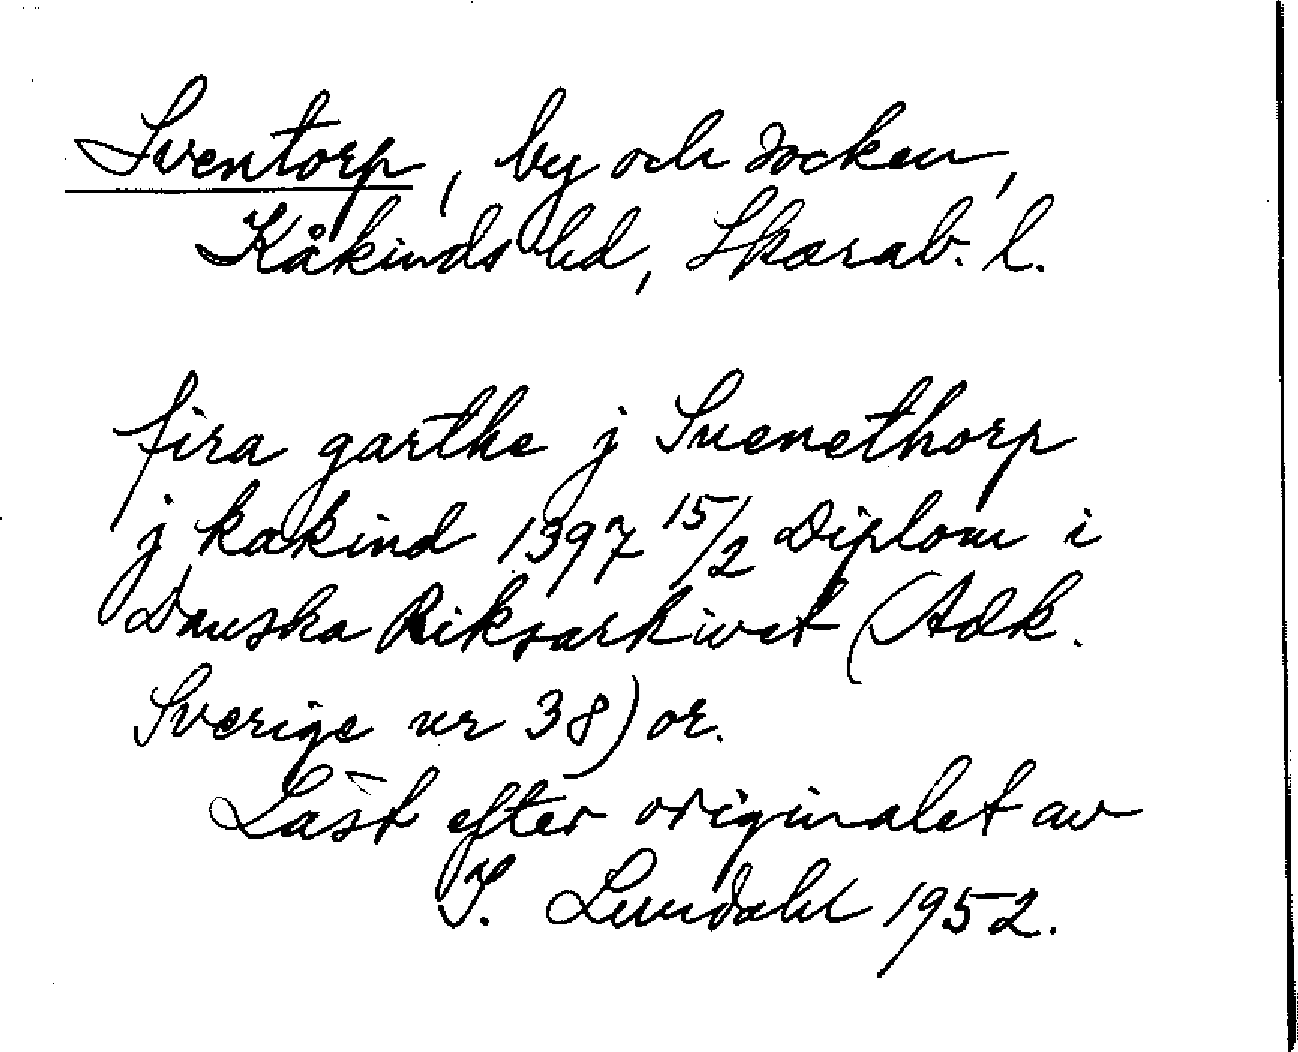 Sventorp, by och socken,
Kåkinds hd, Skarab. l.
fira garthe j Svenethorp
j kakind 1397 15/2 Diplom i
Danska Riksarkivet (Adk.
Sverige nr 38) or.
Läst efter originalet av
I. Lundahl 1952.